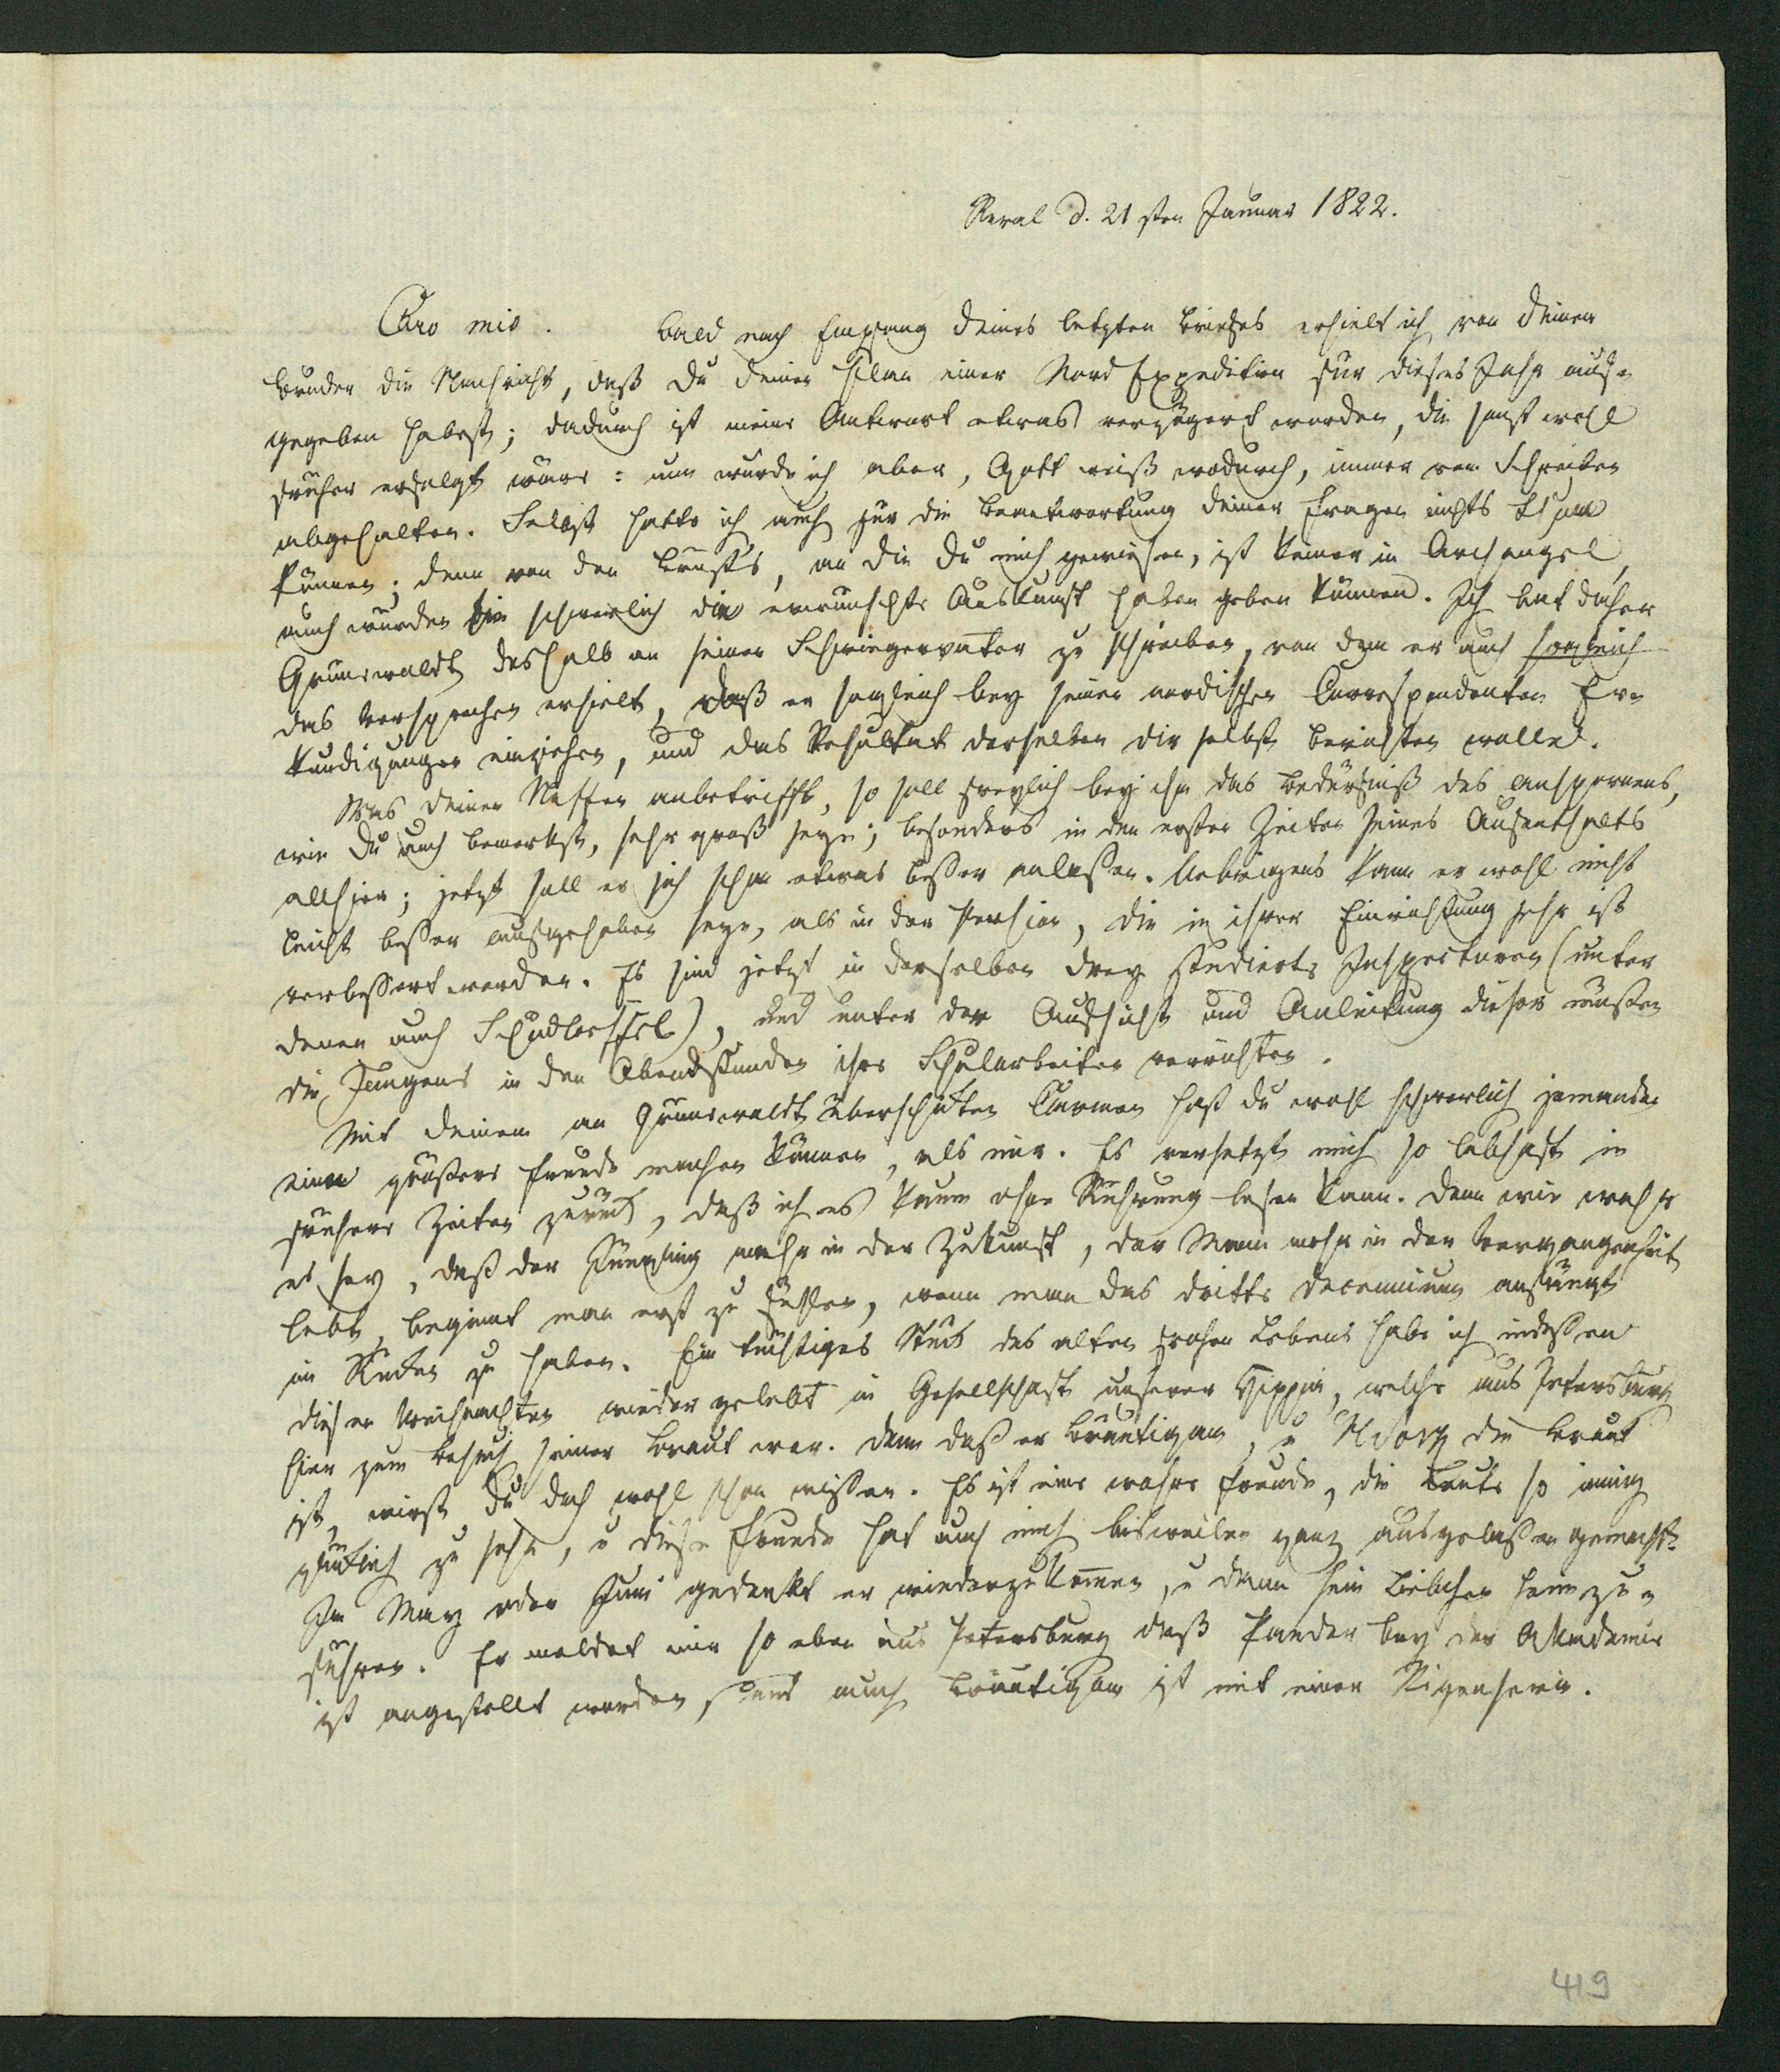 Reval d. 21sten Januar 1822.
Caro mio. Bald nach Empfang deines letzten Briefes erhielt ich von deinem
Bruder die Nachricht, daß du deinen Plan einer Nord Expedition für dieses Jahr auf-
gegeben habest; dadurch ist meine Antwort etwas verzögert worden, die sonst wohl
früher erfolgt wäre: nun wurde ich aber, Gott weiß wodurch, immer vom Schreiben
abgehalten. Selbst hätte ich auch für die Beantwortung deiner Fragen nichts thun
können; denn von den, an die du mich gewiesen, ist keiner in Archangel,
auch würden sie schwerlich die erwünschte Auskunft haben geben können. Ich bat daher
Grünewaldt deshalb an seinen Schwiegervater zu schreiben, von dem er auch sogleich
das Versprechen erhielt, daß er sogleich bey seinen nordischen Correspondenten Er-
kundigungen einziehen, und das Resultat derselben dir selbst berichten wolle.
Was deinen Neffen anbetrifft, so soll freylich bey ihm das Bedürfniß des Anspornens,
wie du auch bemerkst, sehr groß seyn; besonders in den ersten Zeiten seines Aufenthalts
allhier; jetzt soll er sich schon etwas beßer anlaßen. Uebrigens kann er wohl nicht
leicht beßer aufgehoben seyn, als in der Pension, die in ihrer Einrichtung sehr ist
verbeßert worden. Es sind jetzt in derselben drey studierte Inspectoren (unter
denen auch Schüdloeffel), und unter der Aufsicht und Anleitung dieser müßen
die Jungens in den Abendstunden ihre Schularbeiten verrichten.
Mit deinem an Grünewaldt überschickten Carmen hast du wohl schwerlich jemanden
eine größere Freude machen können, als mir. Es versetzt mich so lebhaft in
frühere Zeiten zurück, daß ich es kaum ohne Rührung lesen kann. Denn wie wahr
es sey, daß der Jüngling mehr in der Zukunft, der Mann mehr in der Vergangenheit
lebt, beginnt man erst zu fühlen, wenn man das dritte Decennium anfängt
im Rücken zu haben. Ein tüchtiges Stück des alten frohen Lebens habe ich indeßen
diesen Weihnachten wieder gelebt in Gesellschaft unseres Hippius, welcher aus Petersburg
hier zum Besuch seiner Braut war. Denn daß er Bräutigam, u die Braut
ist, wirst du doch wohl schon wißen. Es ist eine wahre Freude, die Leute so innig
glücklich zu sehn, u diese Freude hat auch mich bisweilen ganz ausgelaßen gemacht.
Im May oder Juni gedenkt er wiederzukommen, u dann sein Liebchen heimzu-
führen. Er meldet mir so eben aus Petersburg daß Pander bey der Akademie
ist angestellt worden, und auch Bräutigam ist mit einer Rigenserin.
419